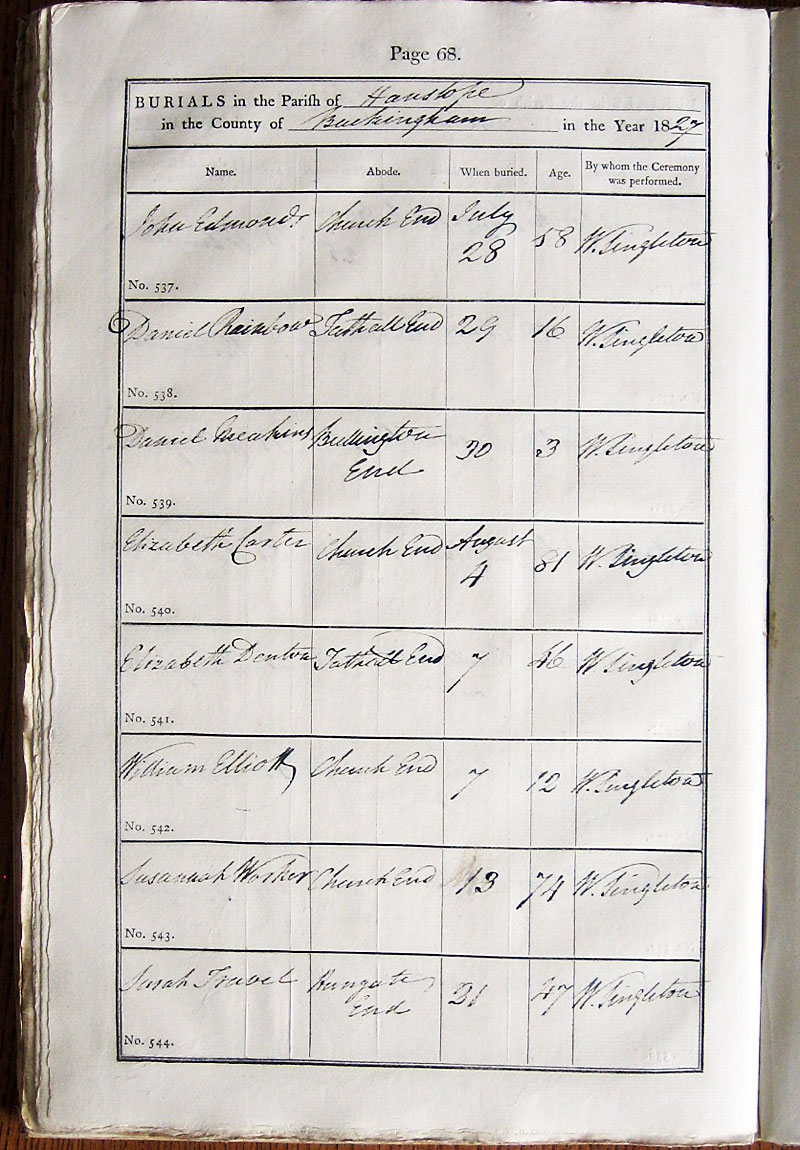 Page 68.
BURIALS in the Parish of Hanslope
in the County of Buckingham in the Year 1827
Name. Abode. When buried. Age. By whom the Ceremony was performed.
John Edmonds Church End July 28 58 W. Singleton
No. 537.
Daniel Rainbow Tathall End 29 16 W. Singleton
No. 538.
Daniel Meakins Bullington End 30 3 W. Singleton
No. 539.
Elizabeth Carter Church End August 4 81 W. Singleton
No. 540.
Elizabeth Denton Tathall End 7 W. Singleton
No. 541.
William Elliott Church End 7 12 W. Singleton
No. 542.
Susannah Worker Church End 13 74 W. Singleton
No. 543.
Sarah Travel Hungate End 31 47 W. Singleton
No. 544.